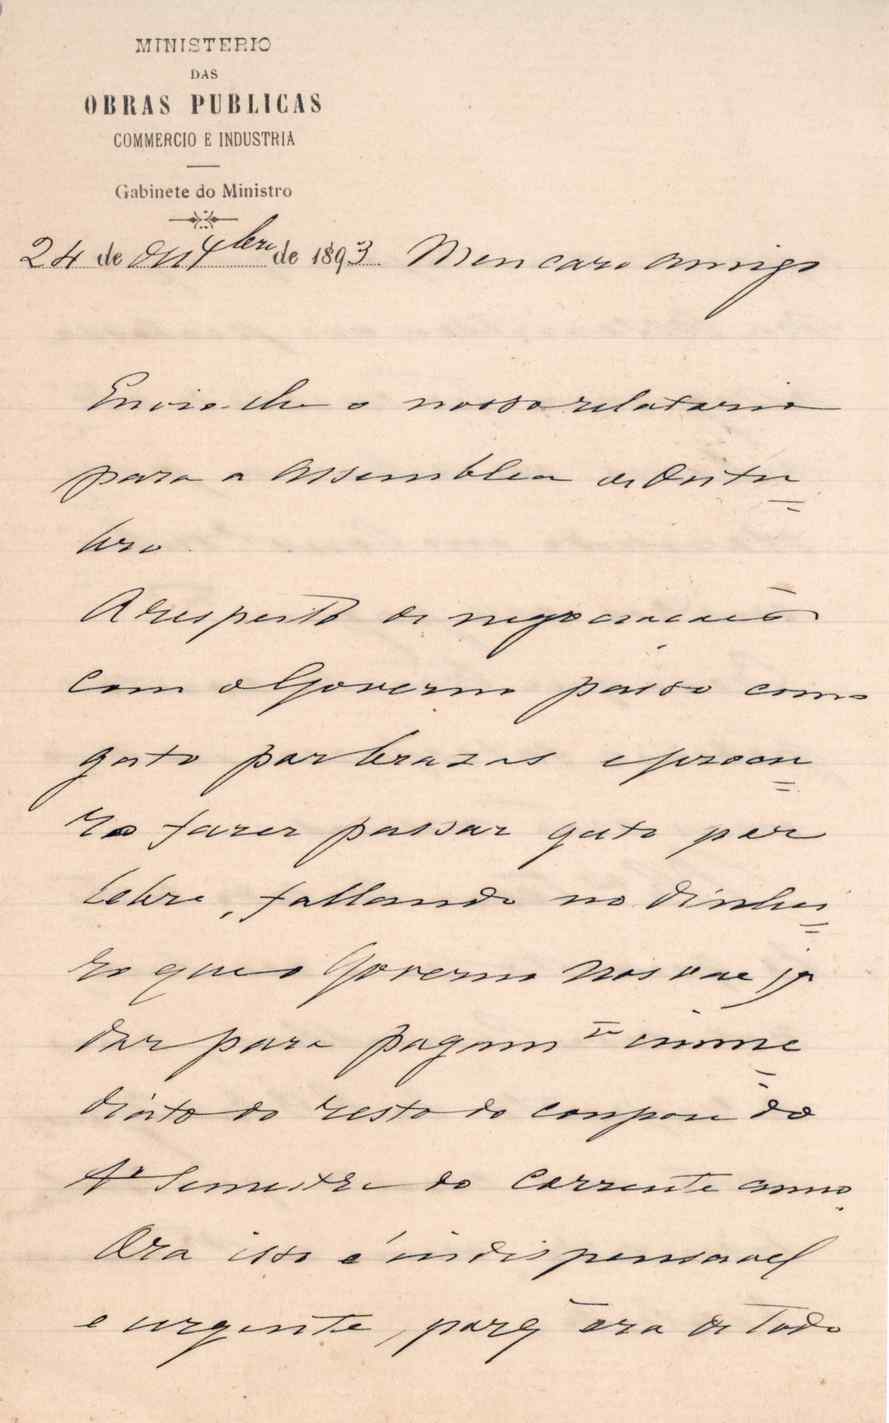 MINISTERIO
DAS
OBRAS PUBLICAS
COMMERCIO E INDUSTRIA
Gabinete do Ministro
24 de de 1893 Meu caro amigo
Envio-lhe o nosso relatorio
para a assemblea de Outu
bro.
A respeito de negociação
com o Governo passo como
gato por brazas e procu
ro fazer passar gato por
lebre, fallando no dinhei
ro que o Governo nos vae já
dar para pagamto imme
diato do resto do coupon do
1º semestre do corrente anno.
Ora isso é indispensavel
e urgente, porq̃ era de todo